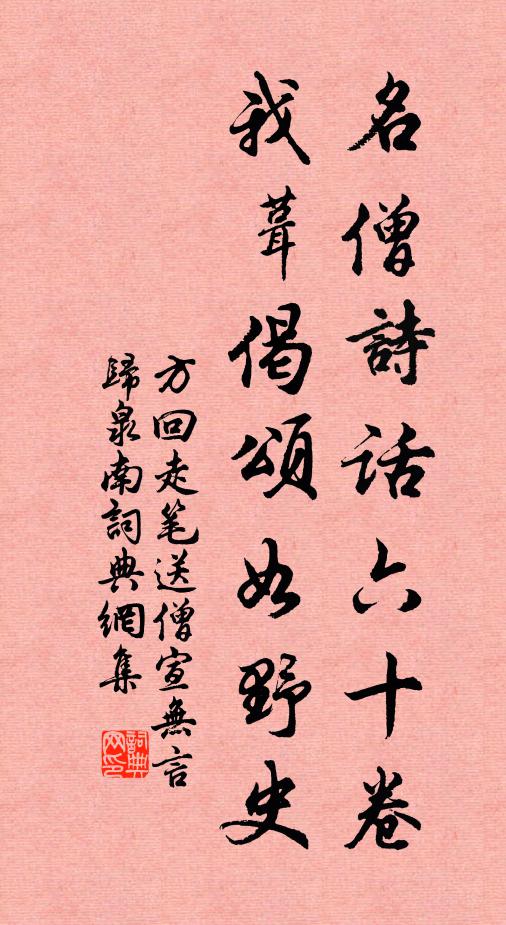 名僧詩話六十卷
我葺偈頌如野史
方回走笔送僧宣無言
歸泉南詞典網集
詞典
网印